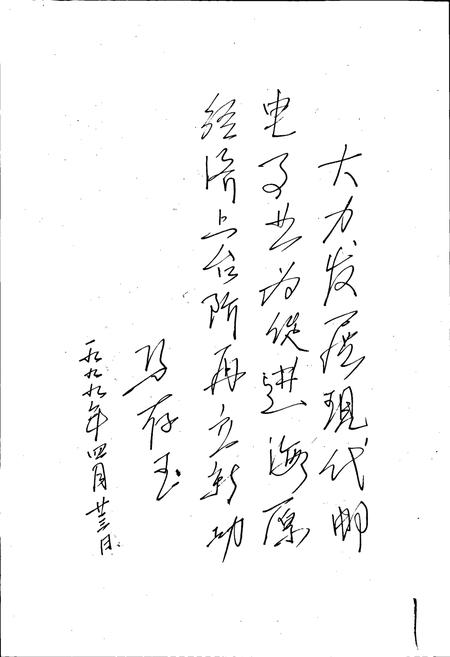 大力发展现代邮
电事业为促进海原
经济上台阶再立新功
马存玉
一九九九年四月廿三日